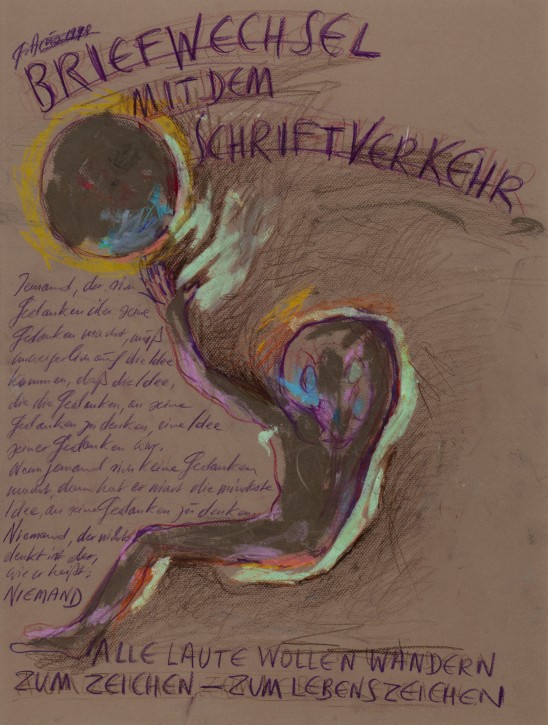 BRIEFWECHSEL
MIT DEM
SCHRIFTVERKEHR
Jemand, der sich
Gedanken über seine
Gedanken macht, muß
auf die Idee
kommen, daß die Idee,
die die Gedanken, an seine
Gedanken zu denken, eine Idee
seiner Gedanken war.
Wenn jemand sich keine Gedanken
macht, dann hat er nicht die mindeste
Idee, an seine Gedanken zu denken.
Niemand, der nicht
denkt ist der,
wie er heißt:
NIEMAND
ALLE LAUTE WOLLEN WANDERN
ZUM ZEICHEN – ZUM LEBENSZEICHEN